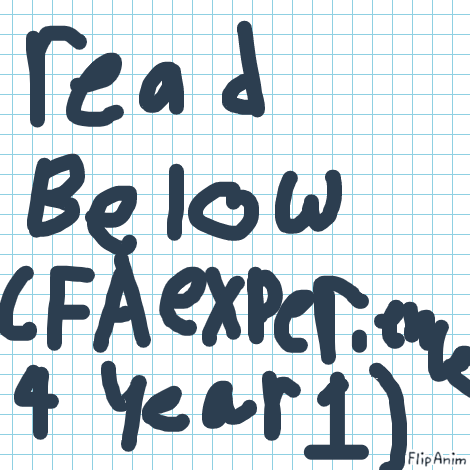 read
Below
(FA experience
4 year 1)
FlipAnim